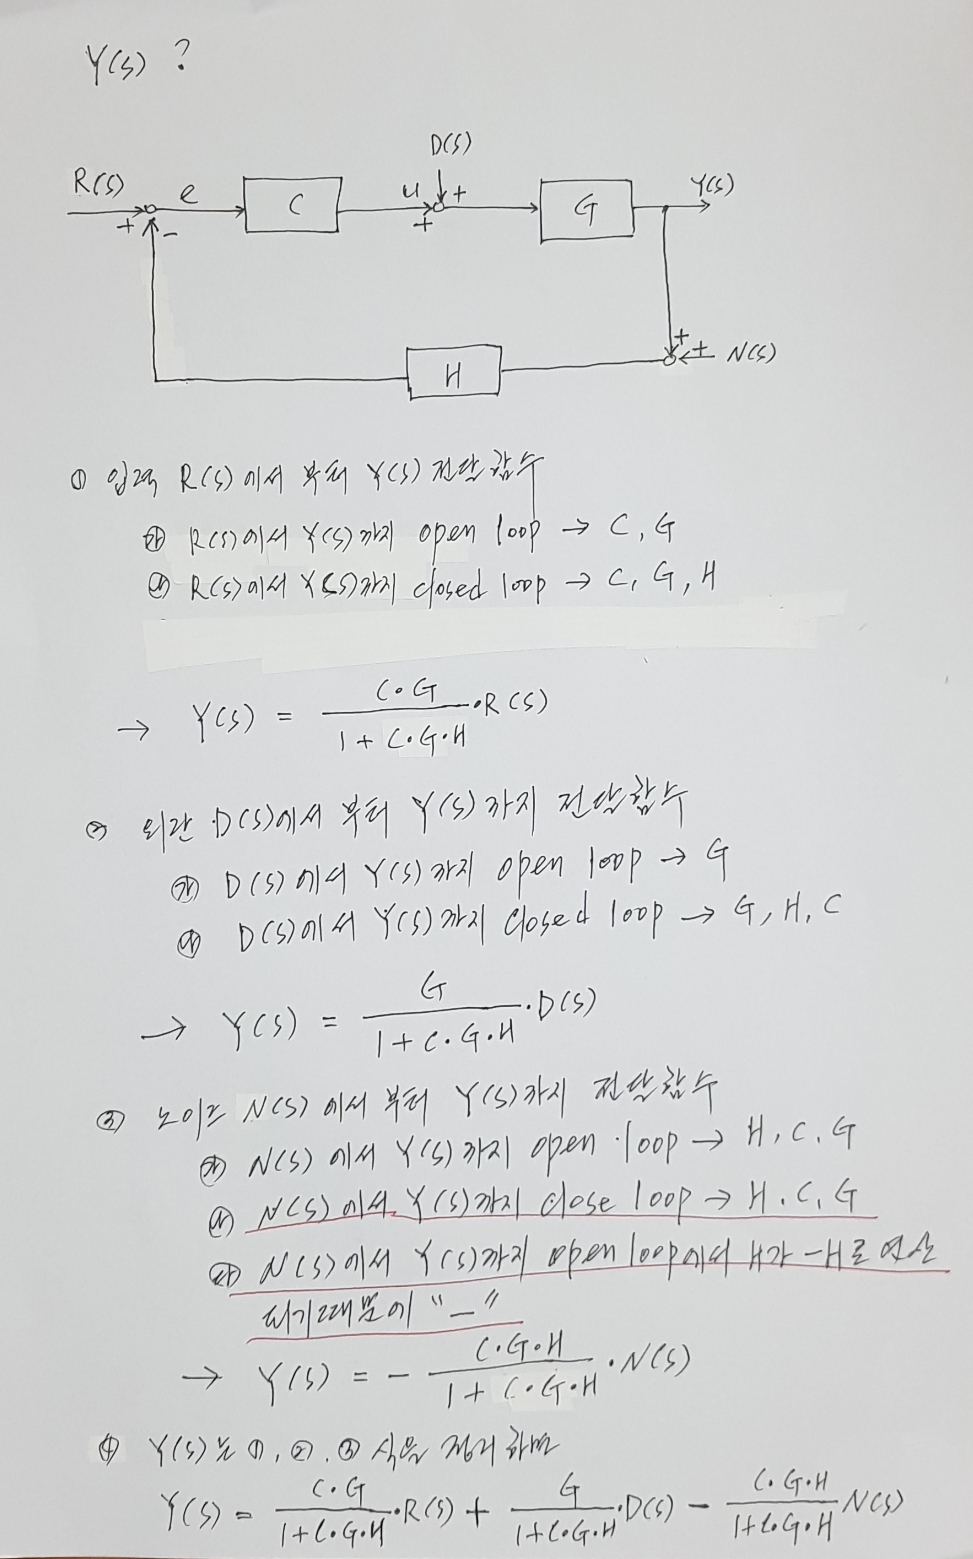 Y(s) ?
D(s)
R(s) e C u + G Y(s)
+ - +
+
± N(s)
H
① 입력 R(s)에서 부터 Y(s) 전달함수
㉮ R(s)에서 Y(s)까지 open loop → C, G
㉯ R(s)에서 Y(s)까지 closed loop → C, G, H
→ Y(s) = C·G / 1 + C·G·H ·R(s)
② 외란 D(s)에서 부터 Y(s)까지 전달함수
㉮ D(s)에서 Y(s)까지 open loop → G
㉯ D(s)에서 Y(s)까지 closed loop → G, H, C
→ Y(s) = G / 1 + C·G·H ·D(s)
③ 노이즈 N(s)에서 부터 Y(s)까지 전달함수
㉮ N(s)에서 Y(s)까지 open loop → H, C, G
㉯ N(s)에서 Y(s)까지 close loop → H, C, G
㉰ N(s)에서 Y(s)까지 open loop에서 H가 -H로 연산
되기때문에 "-"
→ Y(s) = - C·G·H / 1 + C·G·H ·N(s)
④ Y(s)는 ①, ②, ③ 식을 정리하면
Y(s) = C·G / 1+C·G·H ·R(s) + G / 1+C·G·H ·D(s) - C·G·H / 1+C·G·H N(s)